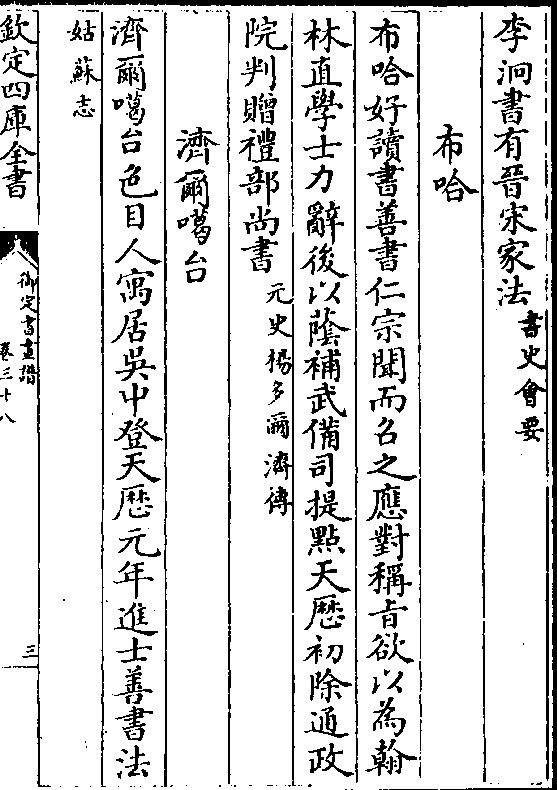 李泂書有晉宋家法書史會要
布哈
布哈好讀書善書仁宗聞而召之應對稱旨欲以為翰
林直學士力辭後以蔭補武備司提點天厯初除通政
院判贈禮部尚書元史楊多爾濟傳
濟爾噶台
濟爾噶台色目人寓居吳中登天厯元年進士善書法
姑蘇志
欽定四庫全書
御定書畫譜
卷三十八
三